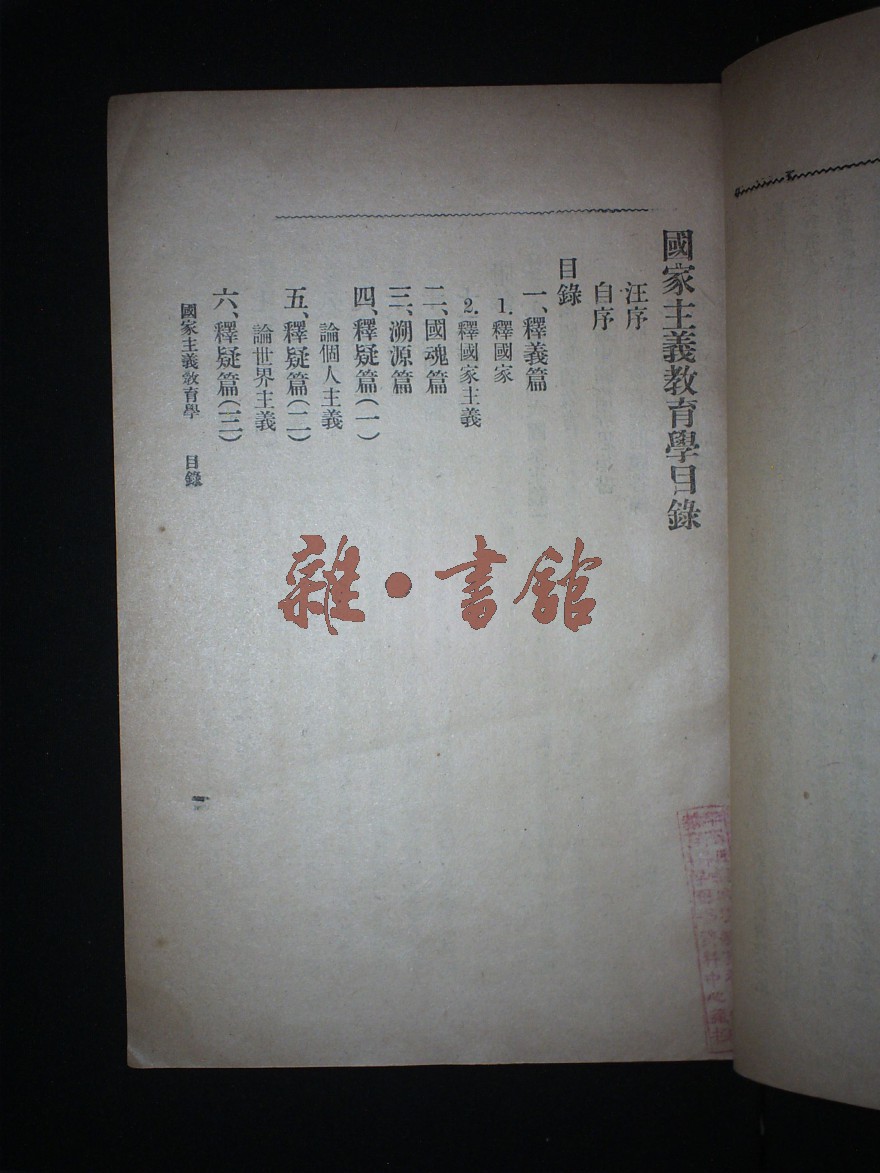 國家主義教育學目錄
汪序
自序
目錄
一、釋義篇
1. 釋國家
2. 釋國家主義
二、國魂篇
三、溯源篇
四、釋疑篇(一)
論個人主義
五、釋疑篇(二)
論世界主義
六、釋疑篇(三)
國家主義教育學 目錄
一
雜·書館